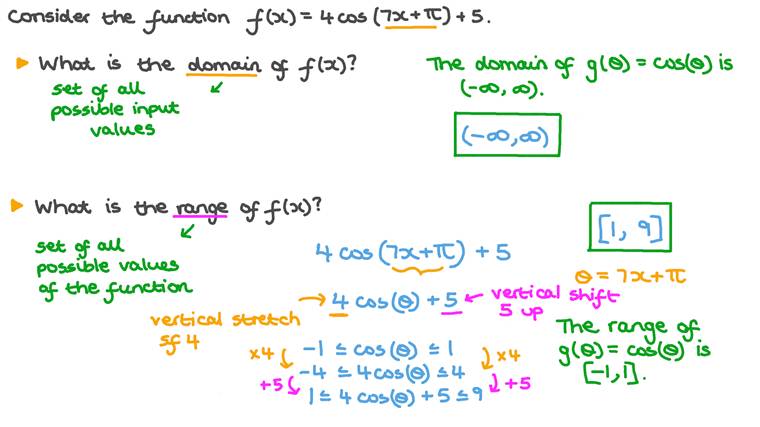 Consider the function f(x) = 4 cos (7x + π) + 5.
What is the domain of f(x)?
set of all
possible input
values
The domain of g(θ) = cos(θ) is
(-∞, ∞).
(-∞, ∞)
What is the range of f(x)?
set of all
possible values
of the function
[1, 9]
4 cos (7x + π) + 5
θ = 7x + π
4 cos (θ) + 5
vertical shift
5 up
vertical stretch
sf 4
The range of
g(θ) = cos(θ) is
[-1, 1].
×4 -1 ≤ cos(θ) ≤ 1 ×4
-4 ≤ 4 cos(θ) ≤ 4
+5 1 ≤ 4 cos(θ) + 5 ≤ 9 +5